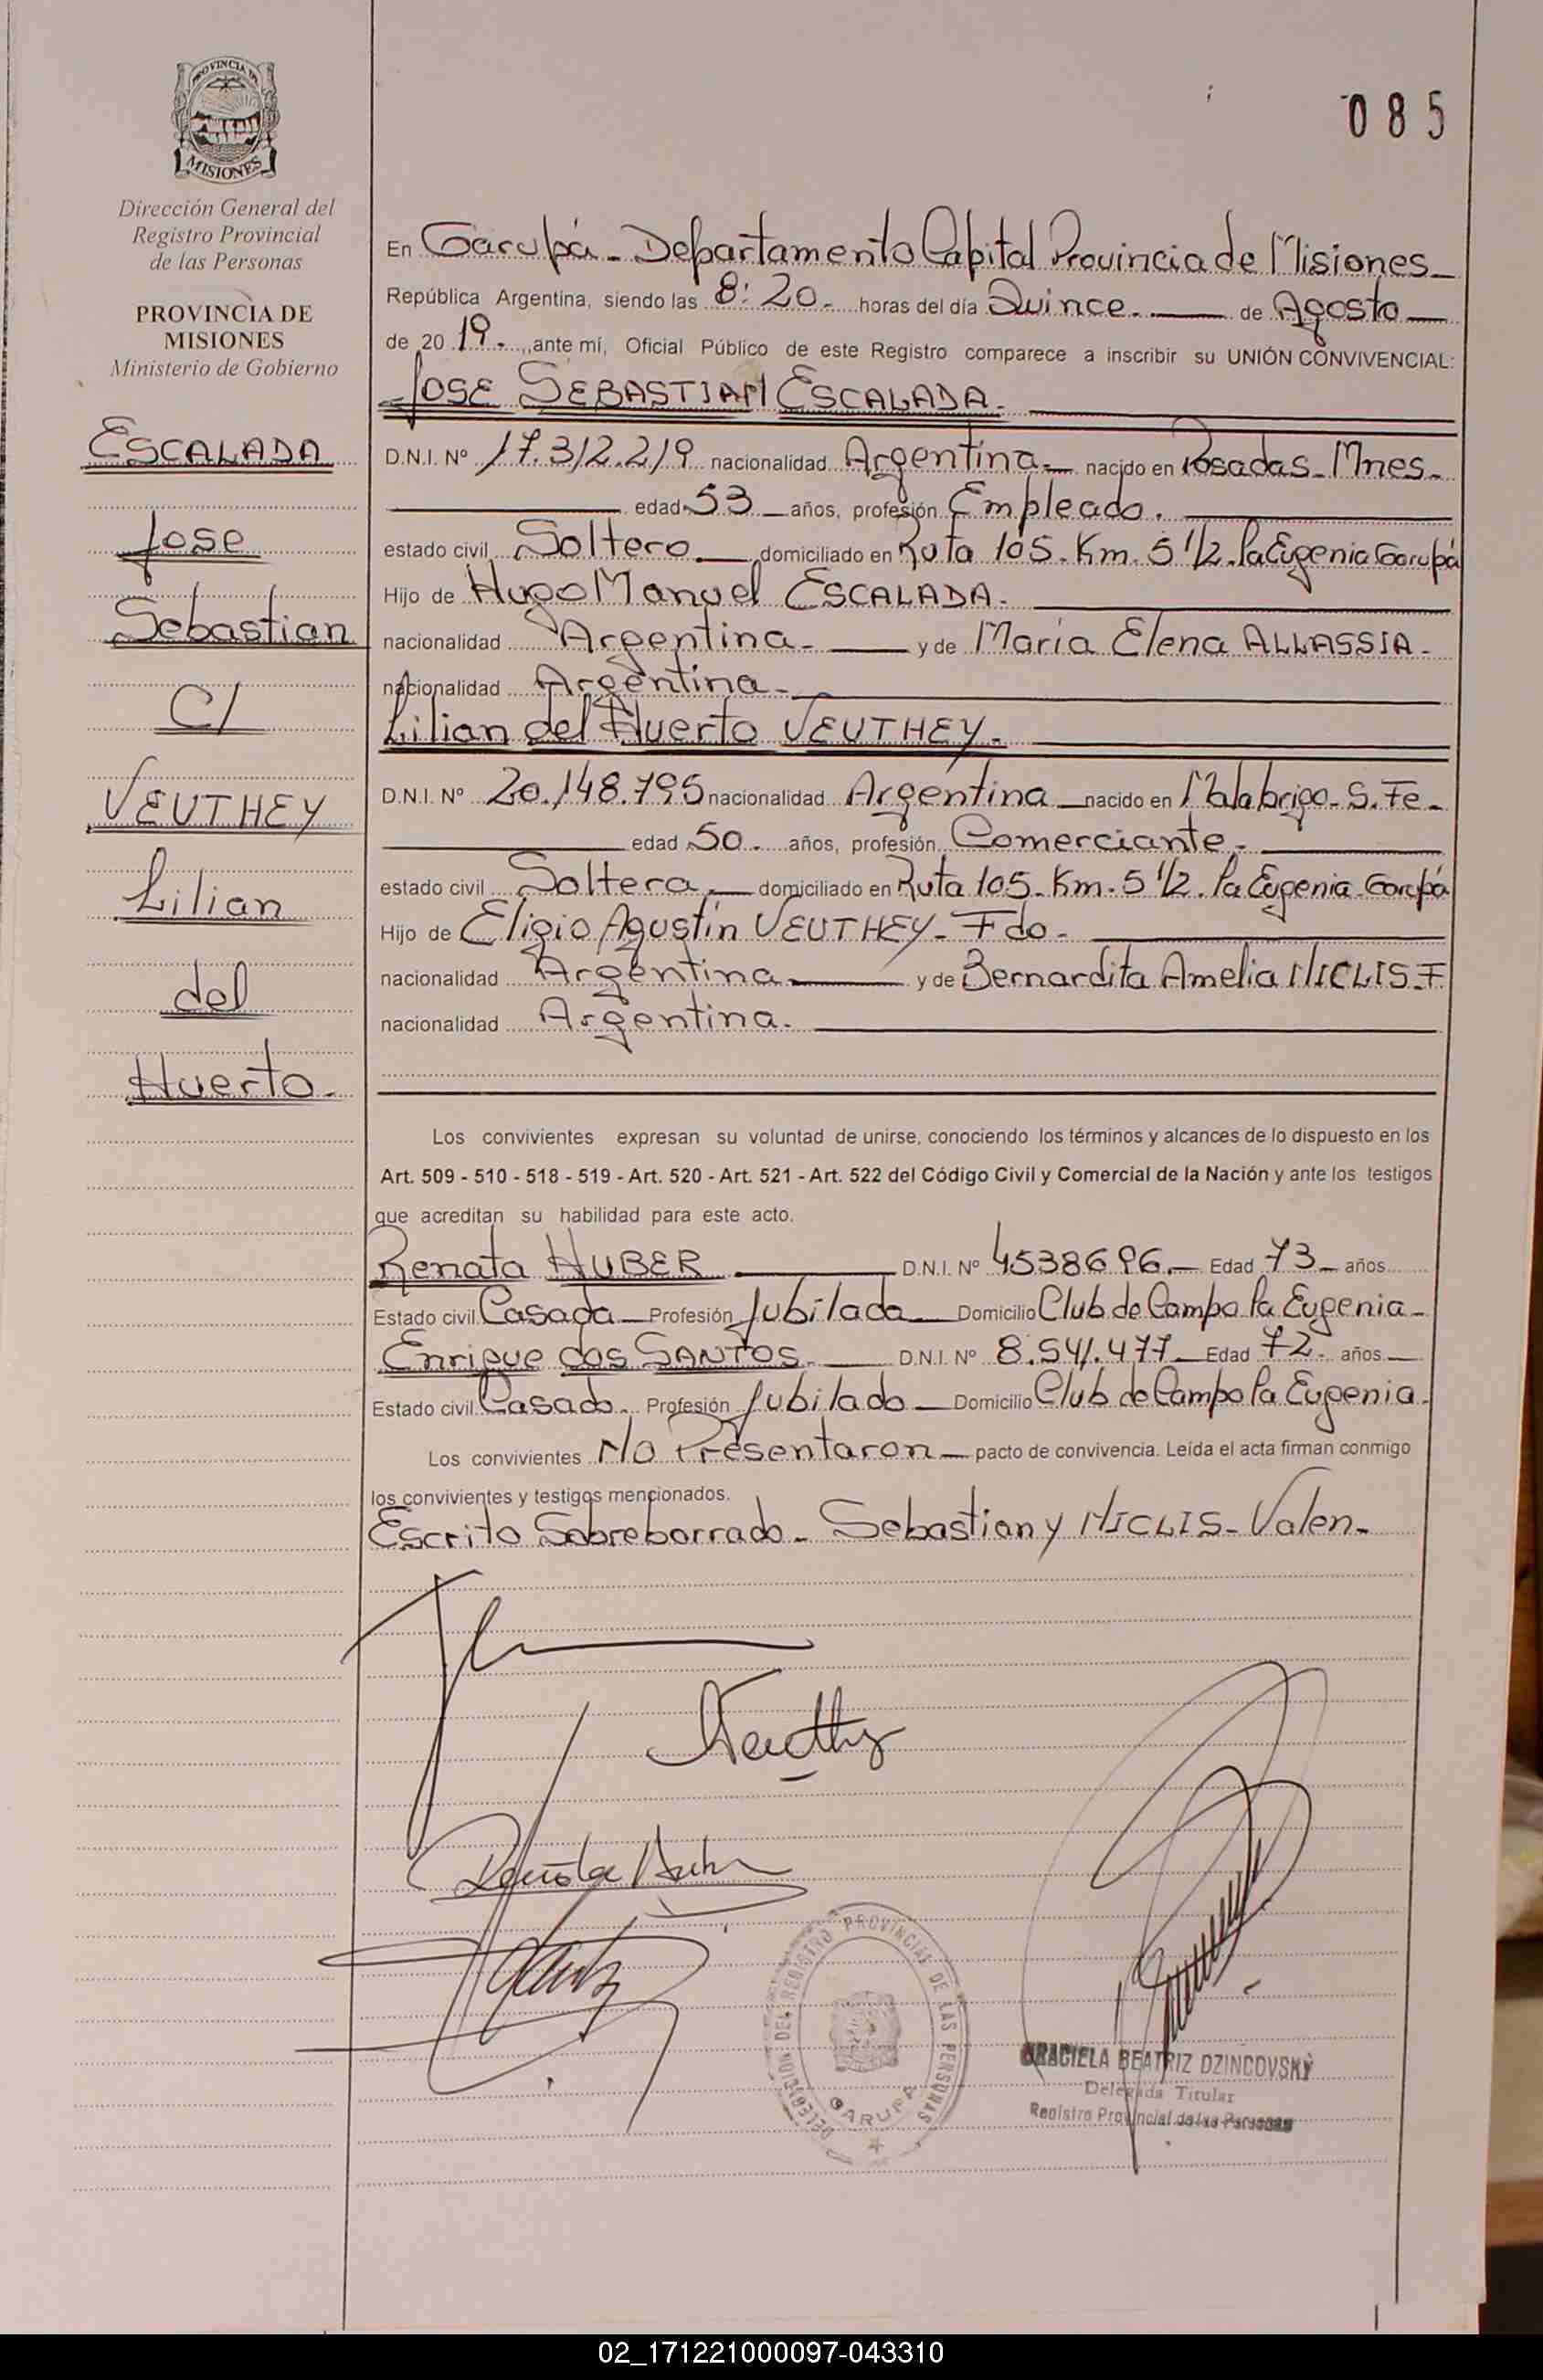 PROVINCIA DE
MISIONES
Dirección General del
Registro Provincial
de las Personas
PROVINCIA DE
MISIONES
Ministerio de Gobierno
ESCALADA
Jose
Sebastian
C/
VEUTHEY
Lilian
del
Huerto.
085
En Garupá - Departamento Capital Provincia de Misiones
República Argentina, siendo las 8:20. horas del día Quince. de Agosto
de 2019. ante mí, Oficial Público de este Registro comparece a inscribir su UNIÓN CONVIVENCIAL:
JOSE SEBASTIAN ESCALADA.
D.N.I. Nº 17.312.219 nacionalidad Argentina nacido en Posadas - Mnes.
edad 53 años, profesión Empleado.
estado civil Soltero domiciliado en Ruta 105. Km. 5 1/2. La Eugenia Garupá
Hijo de Hugo Manuel ESCALADA.
nacionalidad Argentina. y de María Elena ALLASSIA.
nacionalidad Argentina.
Lilian del Huerto VEUTHEY.
D.N.I. Nº 20.148.795 nacionalidad Argentina nacido en Malabrigo - S. Fe.
edad 50. años, profesión Comerciante.
estado civil Soltera. domiciliado en Ruta 105. Km. 5 1/2. La Eugenia - Garupá
Hijo de Eligio Agustín VEUTHEY - Fdo.
nacionalidad Argentina y de Bernardita Amelia NICLIS. F
nacionalidad Argentina.
Los convivientes expresan su voluntad de unirse, conociendo los términos y alcances de lo dispuesto en los
Art. 509 - 510 - 518 - 519 - Art. 520 - Art. 521 - Art. 522 del Código Civil y Comercial de la Nación y ante los testigos
que acreditan su habilidad para este acto.
Renata HUBER D.N.I. Nº 4538696. Edad 73 años
Estado civil Casada Profesión Jubilada Domicilio Club de Campo La Eugenia
Enrique dos SANTOS. D.N.I. Nº 8.541.477 Edad 72. años
Estado civil Casado. Profesión Jubilado Domicilio Club de Campo La Eugenia.
Los convivientes No Presentaron pacto de convivencia. Leída el acta firman conmigo
los convivientes y testigos mencionados.
Escrito Sobreborrado - Sebastian y NICLIS - Valen.
DELEGACION DEL REGISTRO PROVINCIAL DE LAS PERSONAS
GARUPA
GRACIELA BEATRIZ DZINCOVSKY
Delegada Titular
Registro Provincial de las Personas
02_171221000097-043310